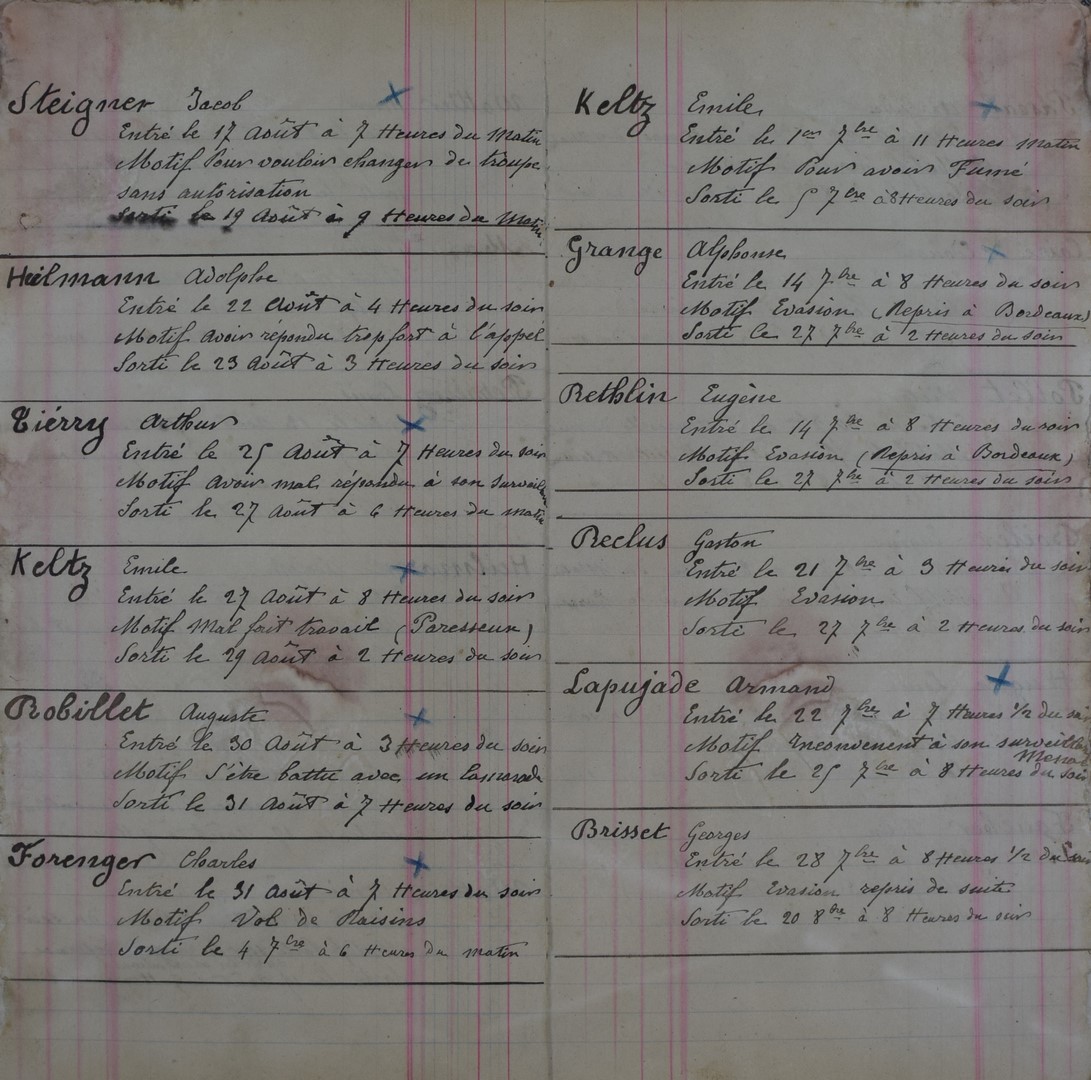 Steigner Jacob
Entré le 17 Août à 7 Heures du Matin
Motif Pour vouloir changer de troupe
sans autorisation
Sorti le 19 Août à 9 Heures du Matin
Heilmann Adolphe
Entré le 22 Août à 4 Heures du soir
Motif avoir répondu trop fort à l'appel
Sorti le 23 Août à 3 Heures du soir
Tiérry Arthur
Entré le 25 Août à 7 Heures du soir
Motif avoir mal répondu à son Surveillant
Sorti le 27 Août à 6 Heures du matin
Keltz Emile
Entré le 27 Août à 8 Heures du soir
Motif Mal fait travail (Paresseux)
Sorti le 29 Août à 2 Heures du soir
Robillet Auguste
Entré le 30 Août à 3 Heures du soir
Motif S'être battu avec un camarade
Sorti le 31 Août à 7 Heures du soir
Forenger Charles
Entré le 31 Août à 7 Heures du soir
Motif Vol de Raisins
Sorti le 4 7bre à 6 Heures du matin
Keltz Emile
Entré le 1er 7bre à 11 Heures matin
Motif Pour avoir Fumé
Sorti le 5 7bre à 8 Heures du soir
Grange Alphonse
Entré le 14 7bre à 8 Heures du soir
Motif Evasion (Repris à Bordeaux)
Sorti le 27 7bre à 2 Heures du soir
Rethlin Eugène
Entré le 14 7bre à 8 Heures du soir
Motif Evasion (Repris à Bordeaux)
Sorti le 27 7bre à 2 Heures du soir
Reclus Gaston
Entré le 21 7bre à 3 Heures du soir
Motif Evasion
Sorti le 27 7bre à 2 Heures du soir
Lapujade Armand
Entré le 22 7bre à 7 Heures 1/2 du soir
Motif Inconvenent à son surveillant
Sorti le 25 7bre à 8 Heures du soir
Brisset Georges
Entré le 28 7bre à 8 Heures 1/2 du soir
Motif Evasion repris de suite
Sorti le 20 8bre à 8 Heures du soir